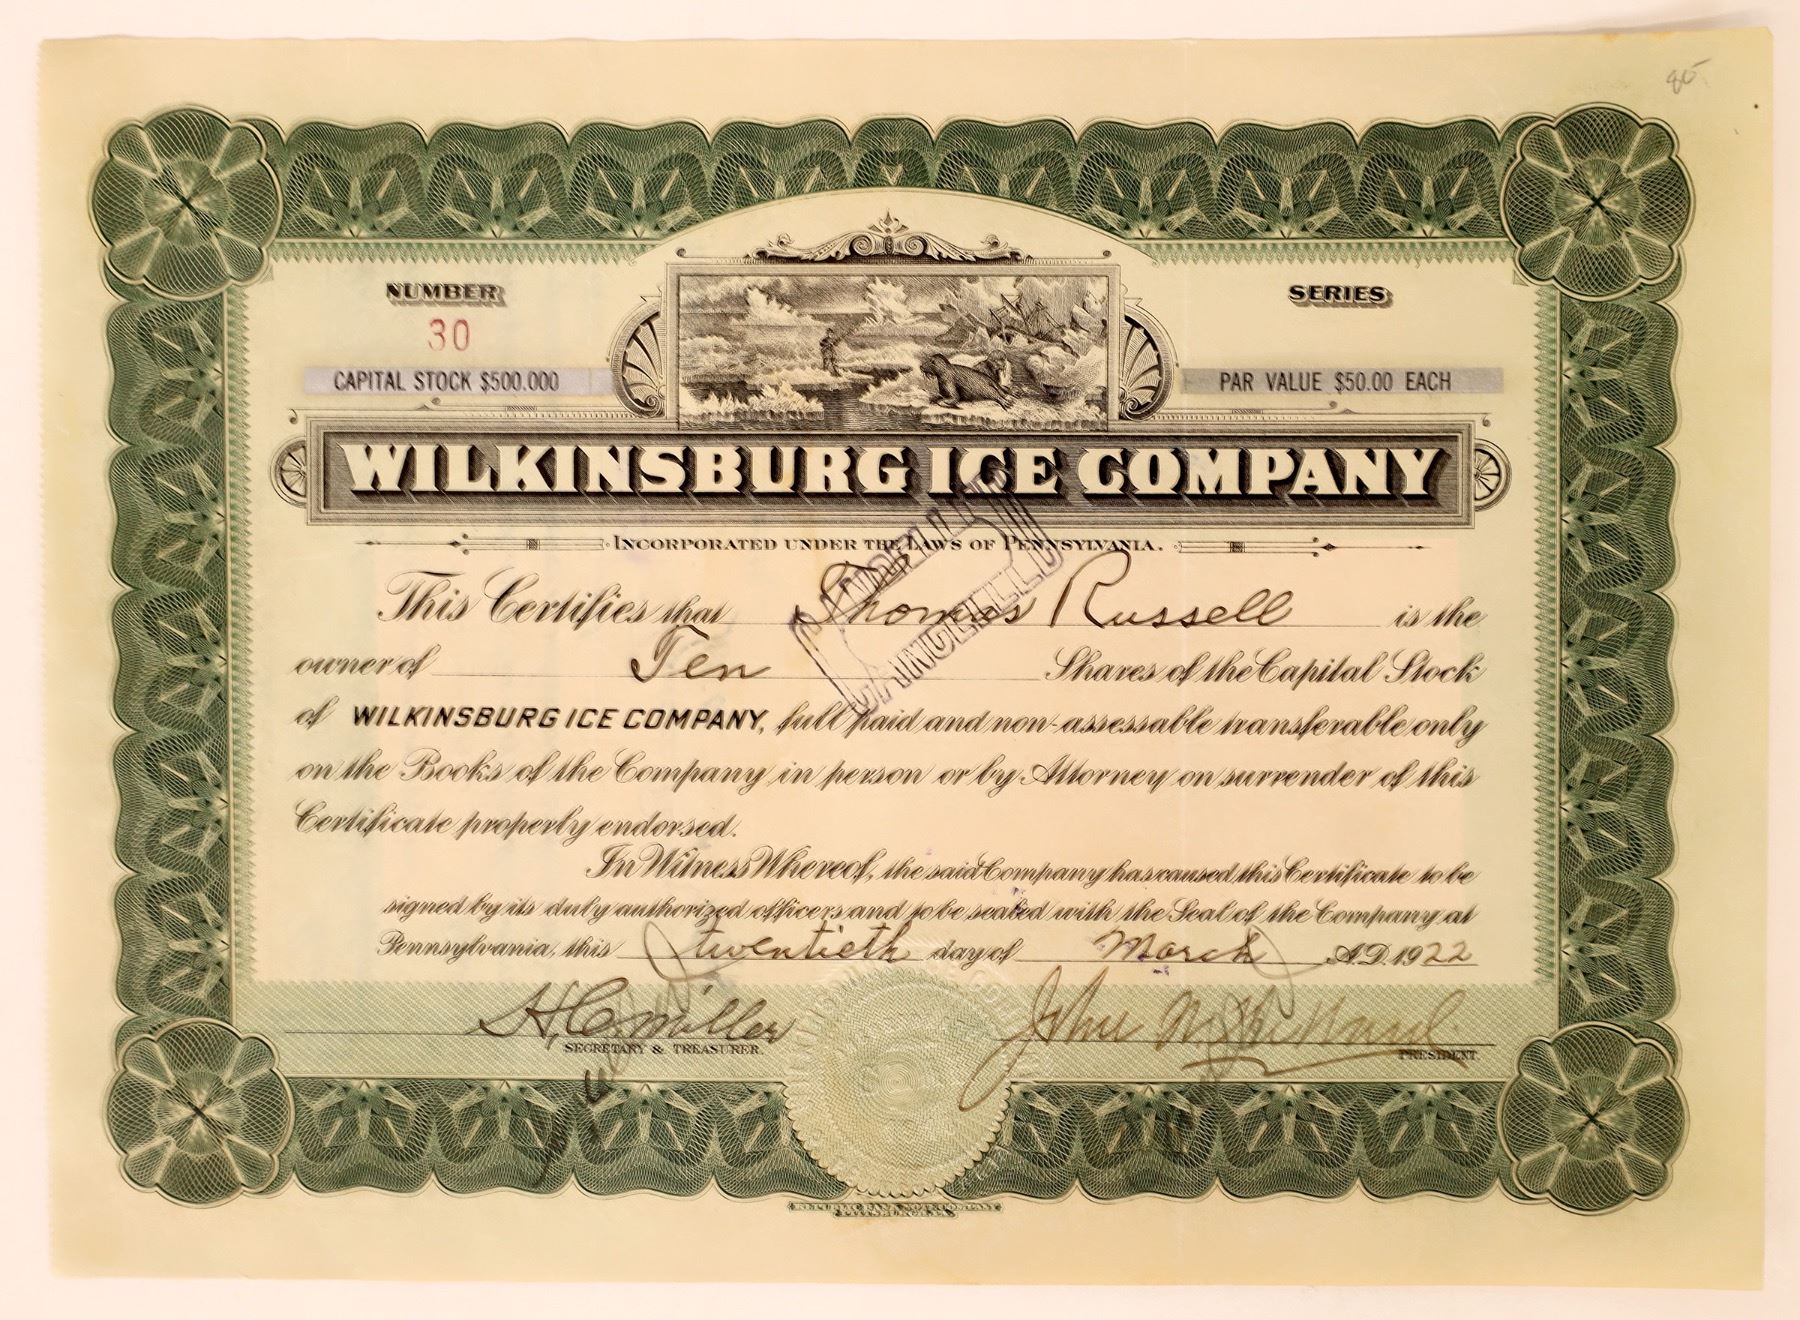 85
NUMBER
SERIES
30
CAPITAL STOCK $500.000
PAR VALUE $50.00 EACH
WILKINSBURG ICE COMPANY
INCORPORATED UNDER THE LAWS OF PENNSYLVANIA.
CANCELLED
This Certifies that Thomas Russell is the
owner of Ten Shares of the Capital Stock
of WILKINSBURG ICE COMPANY, full paid and non-assessable transferable only
on the Books of the Company in person or by Attorney on surrender of this
Certificate properly endorsed.
In Witness Whereof, the said Company has caused this Certificate to be
signed by its duly authorized officers and to be sealed with the Seal of the Company at
Pennsylvania, this twentieth day of March A.D. 1922
H. C. Miller
SECRETARY & TREASURER.
PRESIDENT.
REPUBLIC BANK NOTE COMPANY
PITTSBURGH, PA.